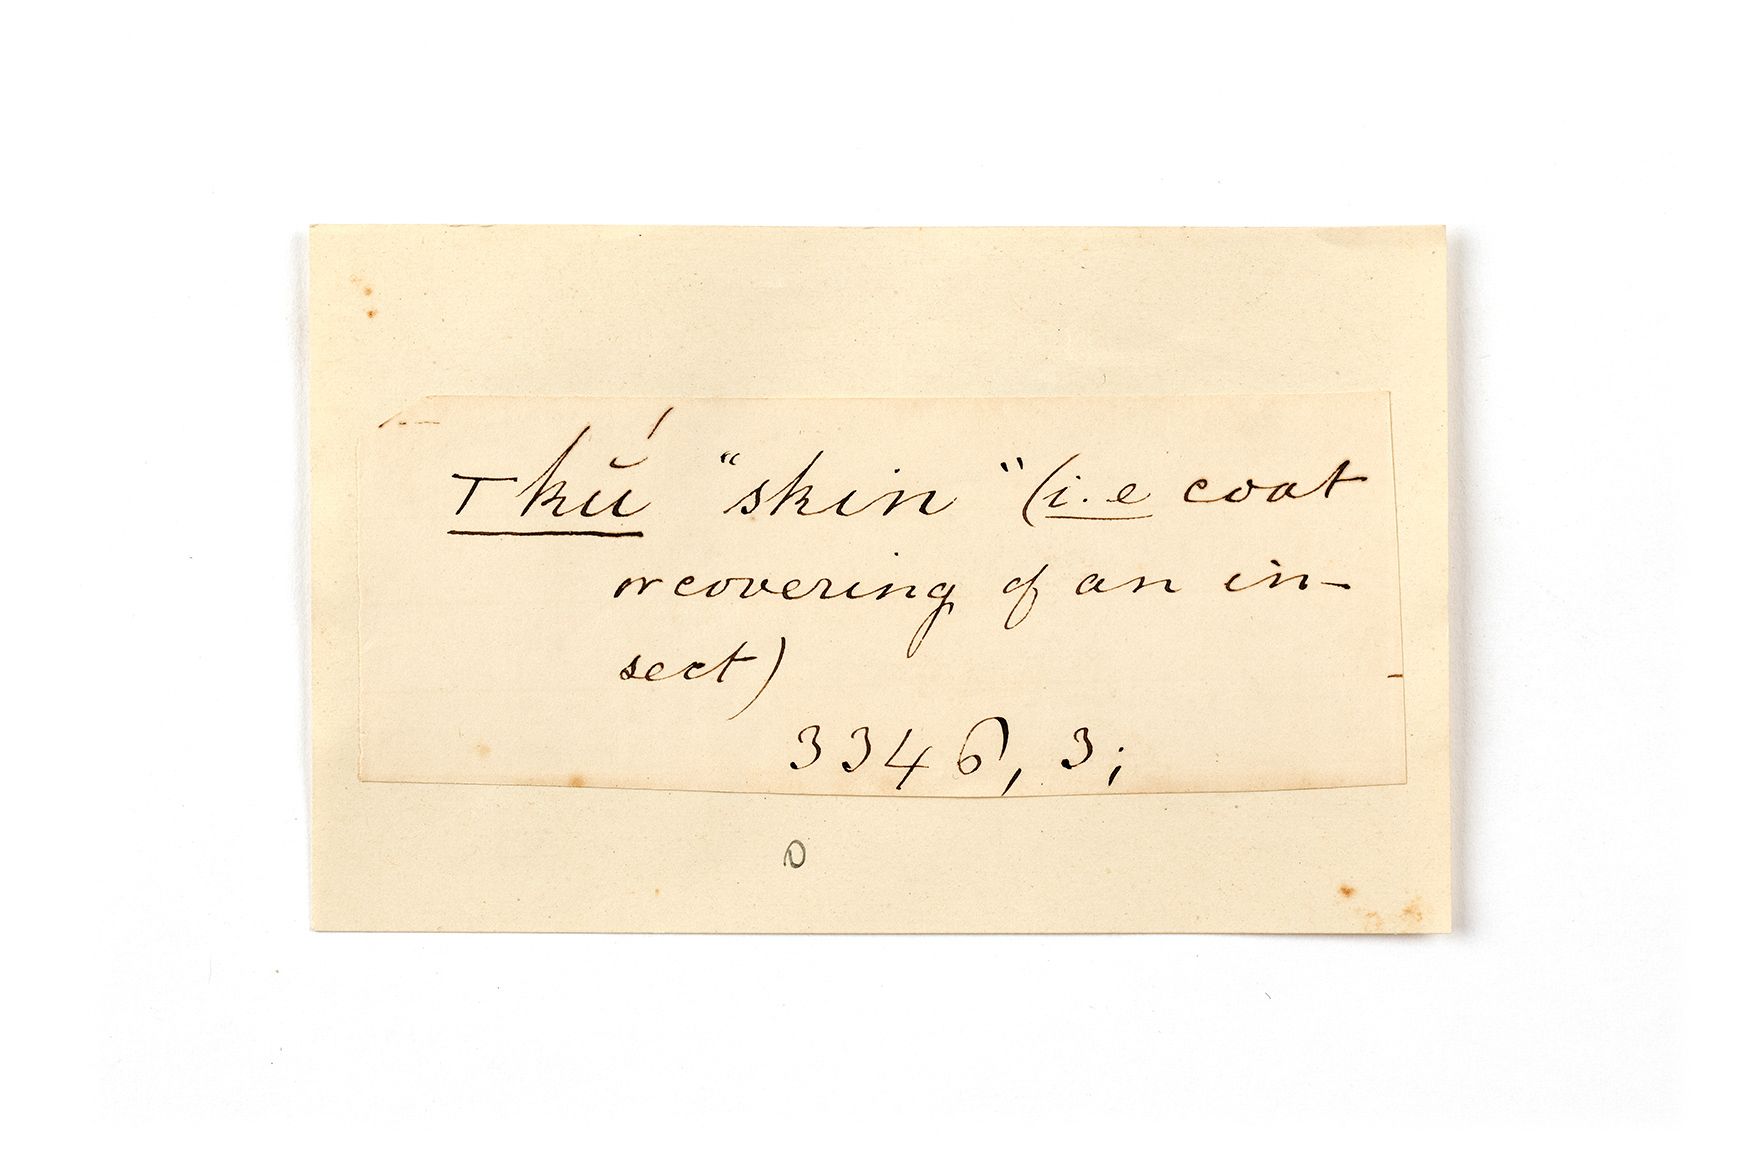 ⊤kŭ́ “skin” (i.e coat
or covering of an in-
sect)
3346, 3;
D